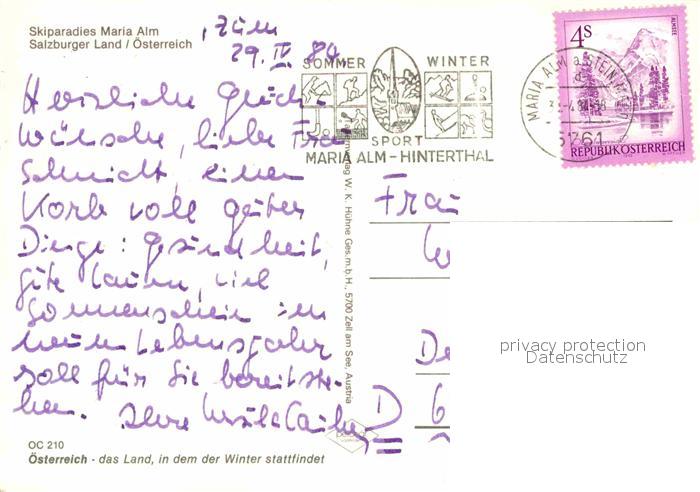 Skiparadies Maria Alm
Salzburger Land / Österreich
, zum
29. IV. 84,
Herzliche Glück-
wünsche, liebe Frau
Schmidt, einen
Korb voll guter
Dinge: Gesundheit,
gute Laune, viel
Sonnenschein im
neuen Lebensjahr
soll für Sie bereitste-
hen. Ihre
OC 210
Österreich - das Land, in dem der Winter stattfindet
SOMMER WINTER
SPORT
MARIA ALM - HINTERTHAL
MARIA ALM a. STEIN
5761
4 S
ALMSEE
REPUBLIK ÖSTERREICH
W. K. Hühne Ges.m.b.H., 5700 Zell am See, Austria
Frau
De
D 6
privacy protection
Datenschutz